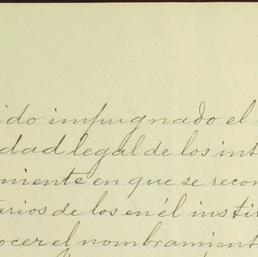 ido impugnado el
dad legal de los int
miente en que se recon
arios de los en él insti
ocer el nombramient